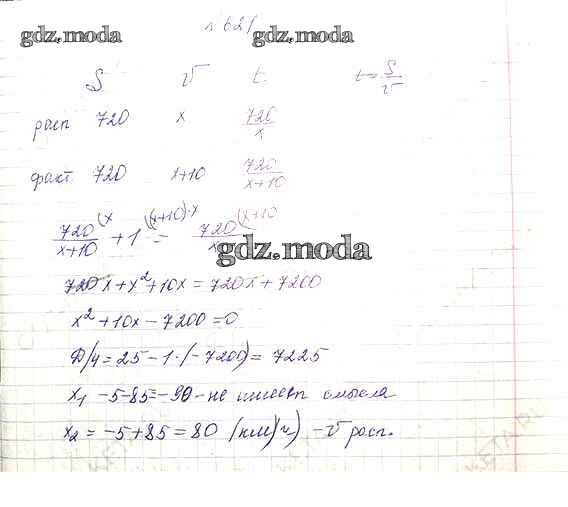 № 621
gdz.moda gdz.moda
S v t t = S/v
расп 720 x 720/x
факт 720 x+10 720/(x+10)
720/(x+10) (x + 1 ((x+10)·x = 720/x (x+10
gdz.moda
720x + x² + 10x = 720x + 7200
x² + 10x - 7200 = 0
D/4 = 25 - 1·(-7200) = 7225
x₁ -5-85 = -90 - не имеет смысла
x₂ = -5+85 = 80 (км/ч) - v расп.